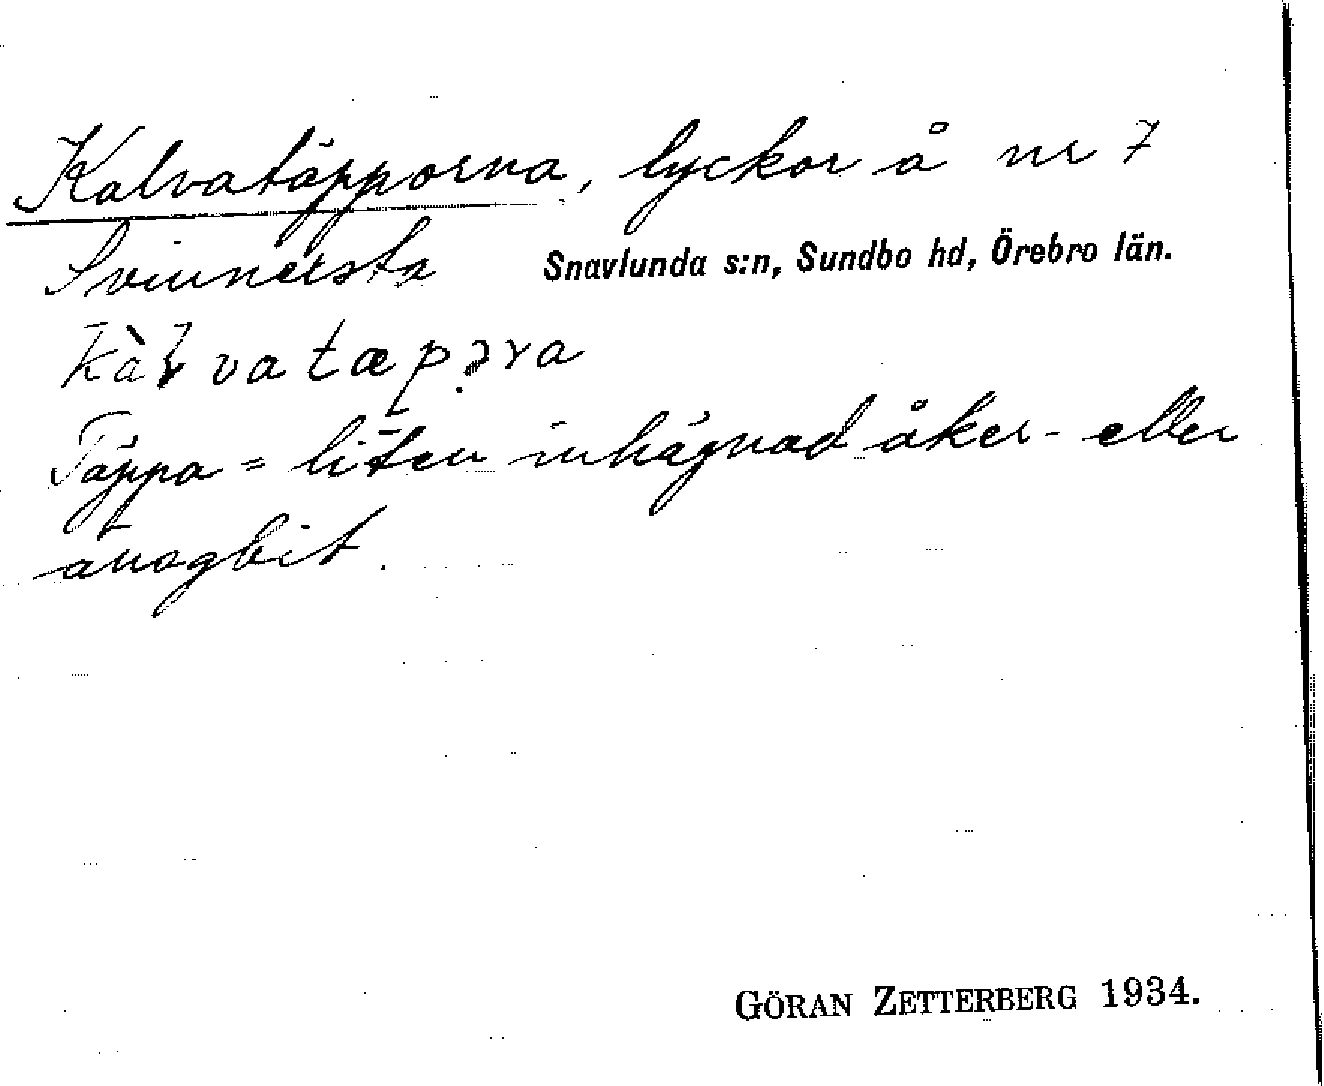 Kalvatäpporna, lyckor å nr 7
Svinnersta Snavlunda s:n, Sundbo hd, Örebro län.
Täppa = liten inhägnad åker- eller
ängsbit.
GÖRAN ZETTERBERG 1934.